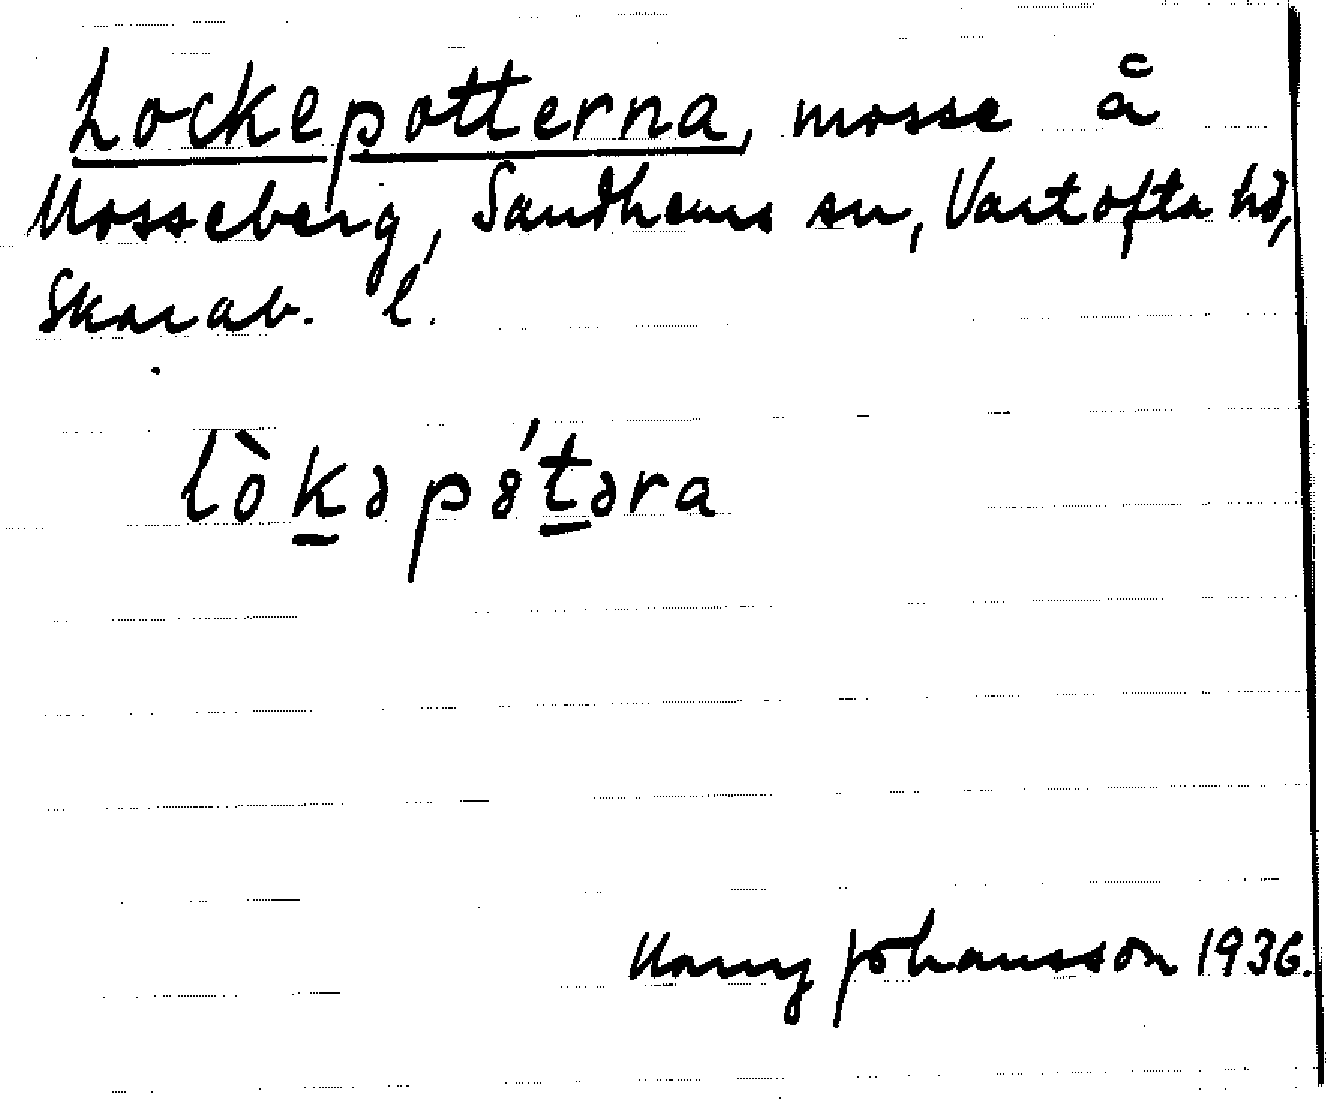 Lockepotterna, mosse å
Mosseberg, Sandhems sn, Vartofta hd,
Skarab. l.
lòkəpɞ́təra
Harry Johansson 1936.